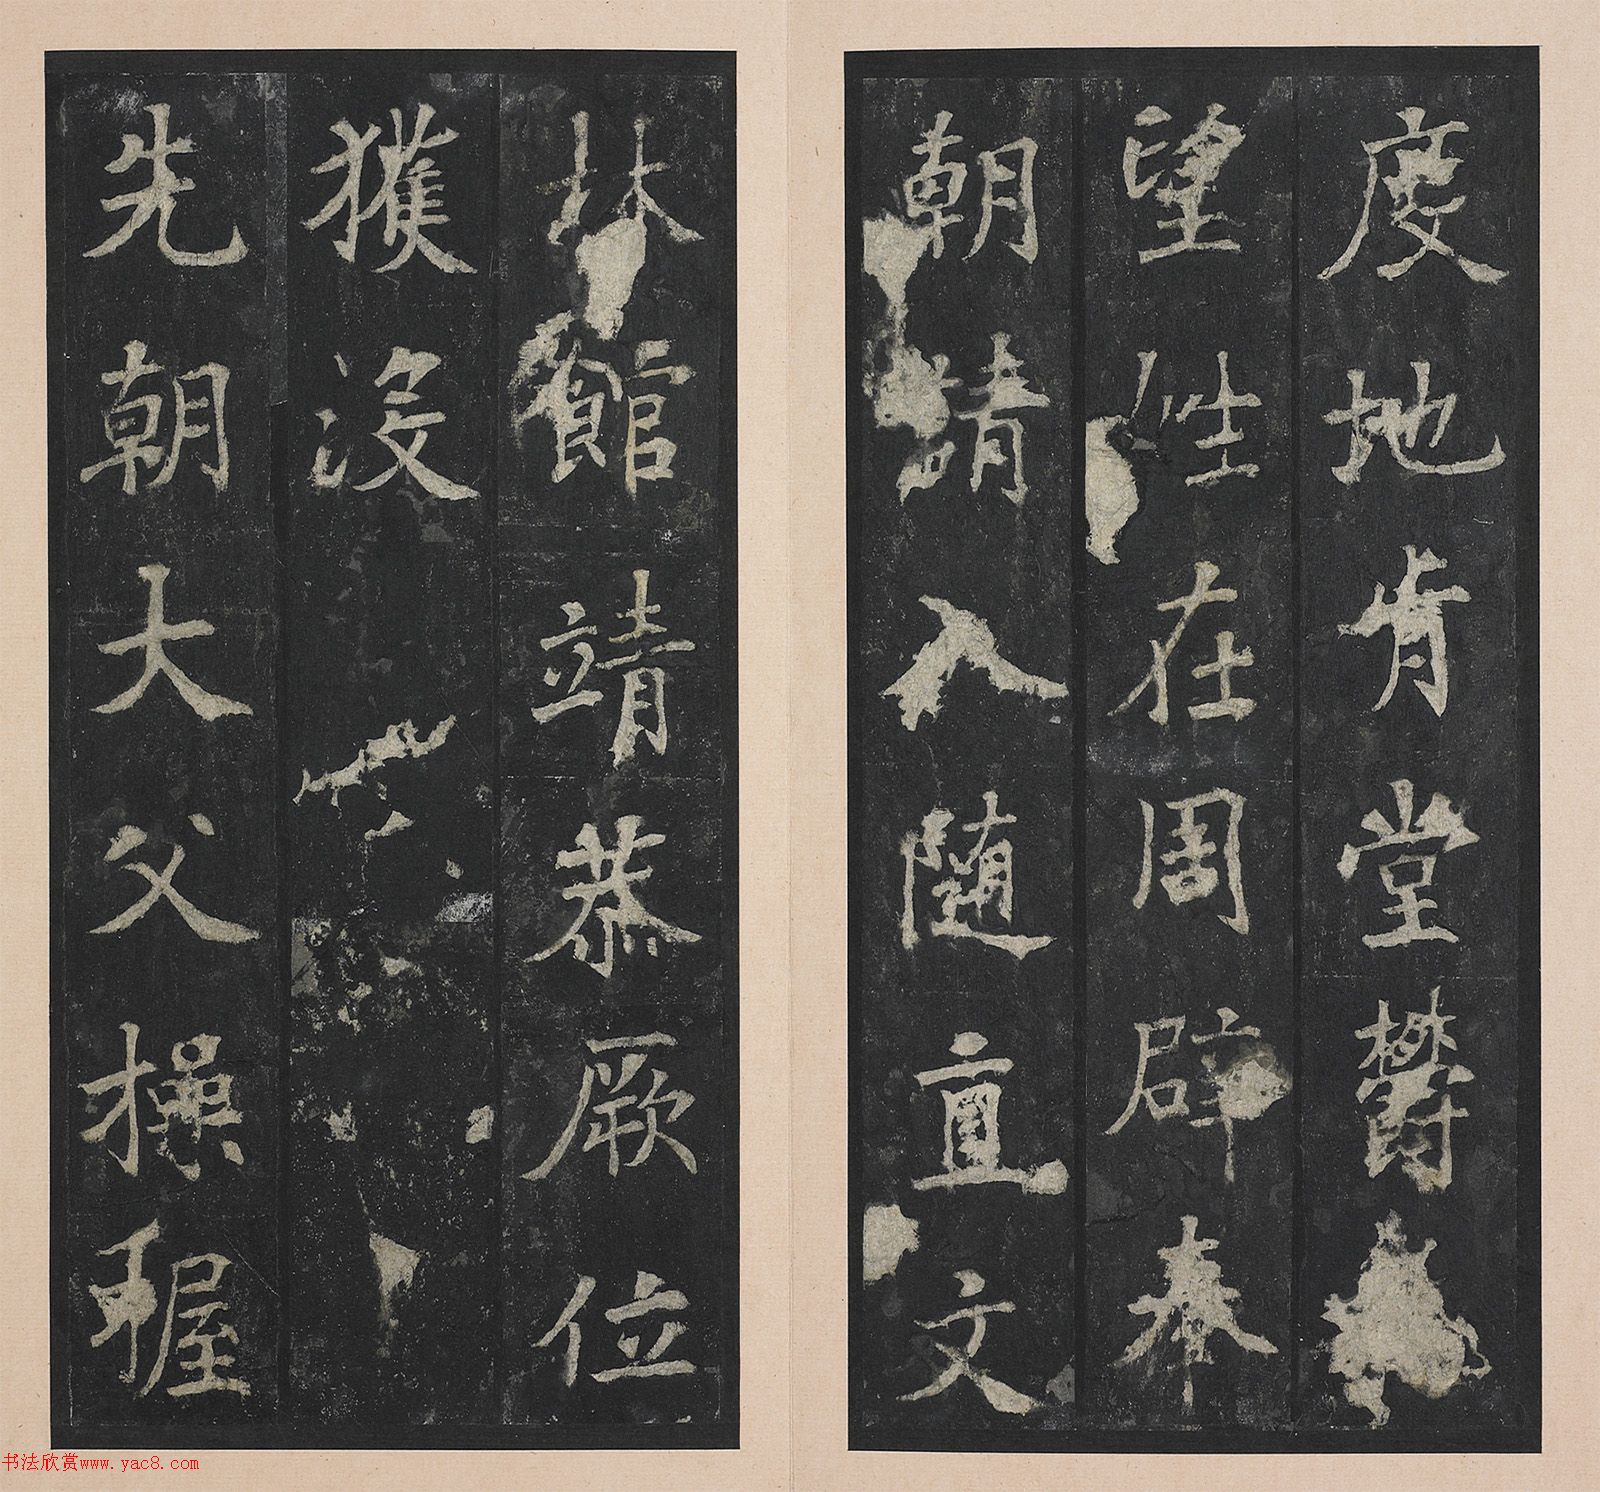 度地肯堂鬱
望姓在周辟奉
朝請入隨直文
林館靖恭厥位
獲沒
先朝大父操握
书法欣赏www.yac8.com